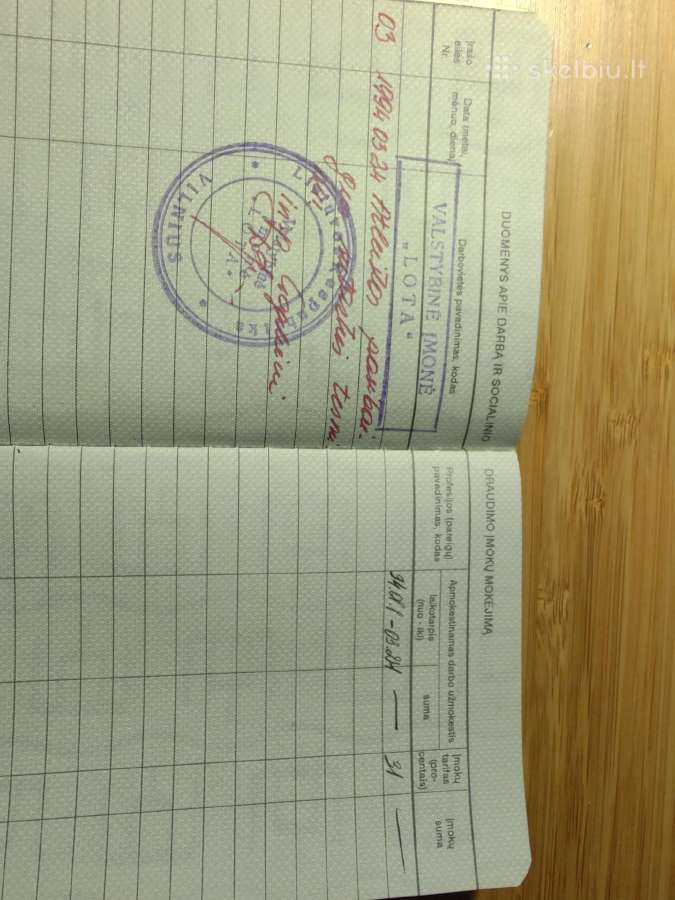 skelbiu.lt
DUOMENYS APIE DARBĄ IR SOCIALINIO
DRAUDIMO ĮMOKŲ MOKĖJIMĄ
Įrašo eilės Nr.
Data (metai, mėnuo, diena)
Darbovietės pavadinimas, kodas
Profesijos (pareigų) pavadinimas, kodas
Apmokestinamas darbo užmokestis
laikotarpis (nuo - iki)
suma
Įmokų tarifas (pro-centais)
Įmokų suma
VALSTYBINĖ ĮMONĖ
„LOTA“
03 1994 03 24 Atleista
94.01.1 - 03.24 — 31 —
VILNIUS